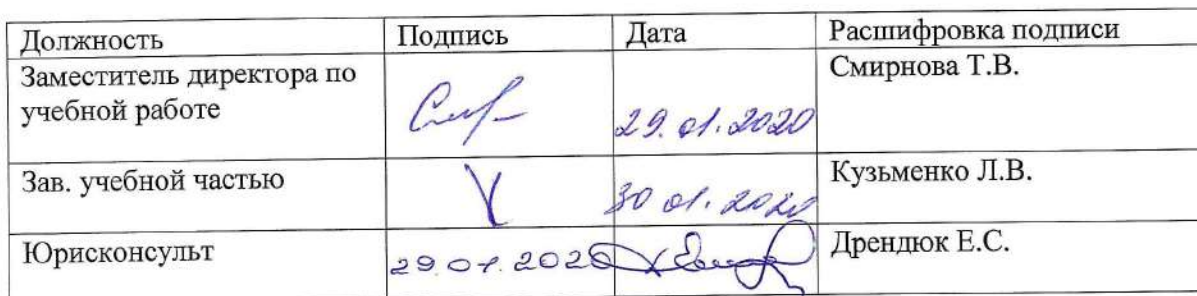 Должность Подпись Дата Расшифровка подписи
Заместитель директора по Смирнова Т.В.
учебной работе 29.01.2020
Зав. учебной частью 30 01.2020 Кузьменко Л.В.
Юрисконсульт 29.01.2020 Дрендюк Е.С.